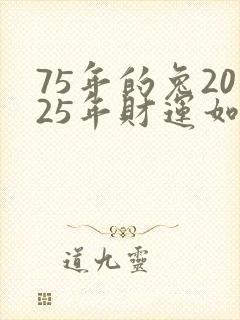 75年的兔20
25年財運如
道九靈